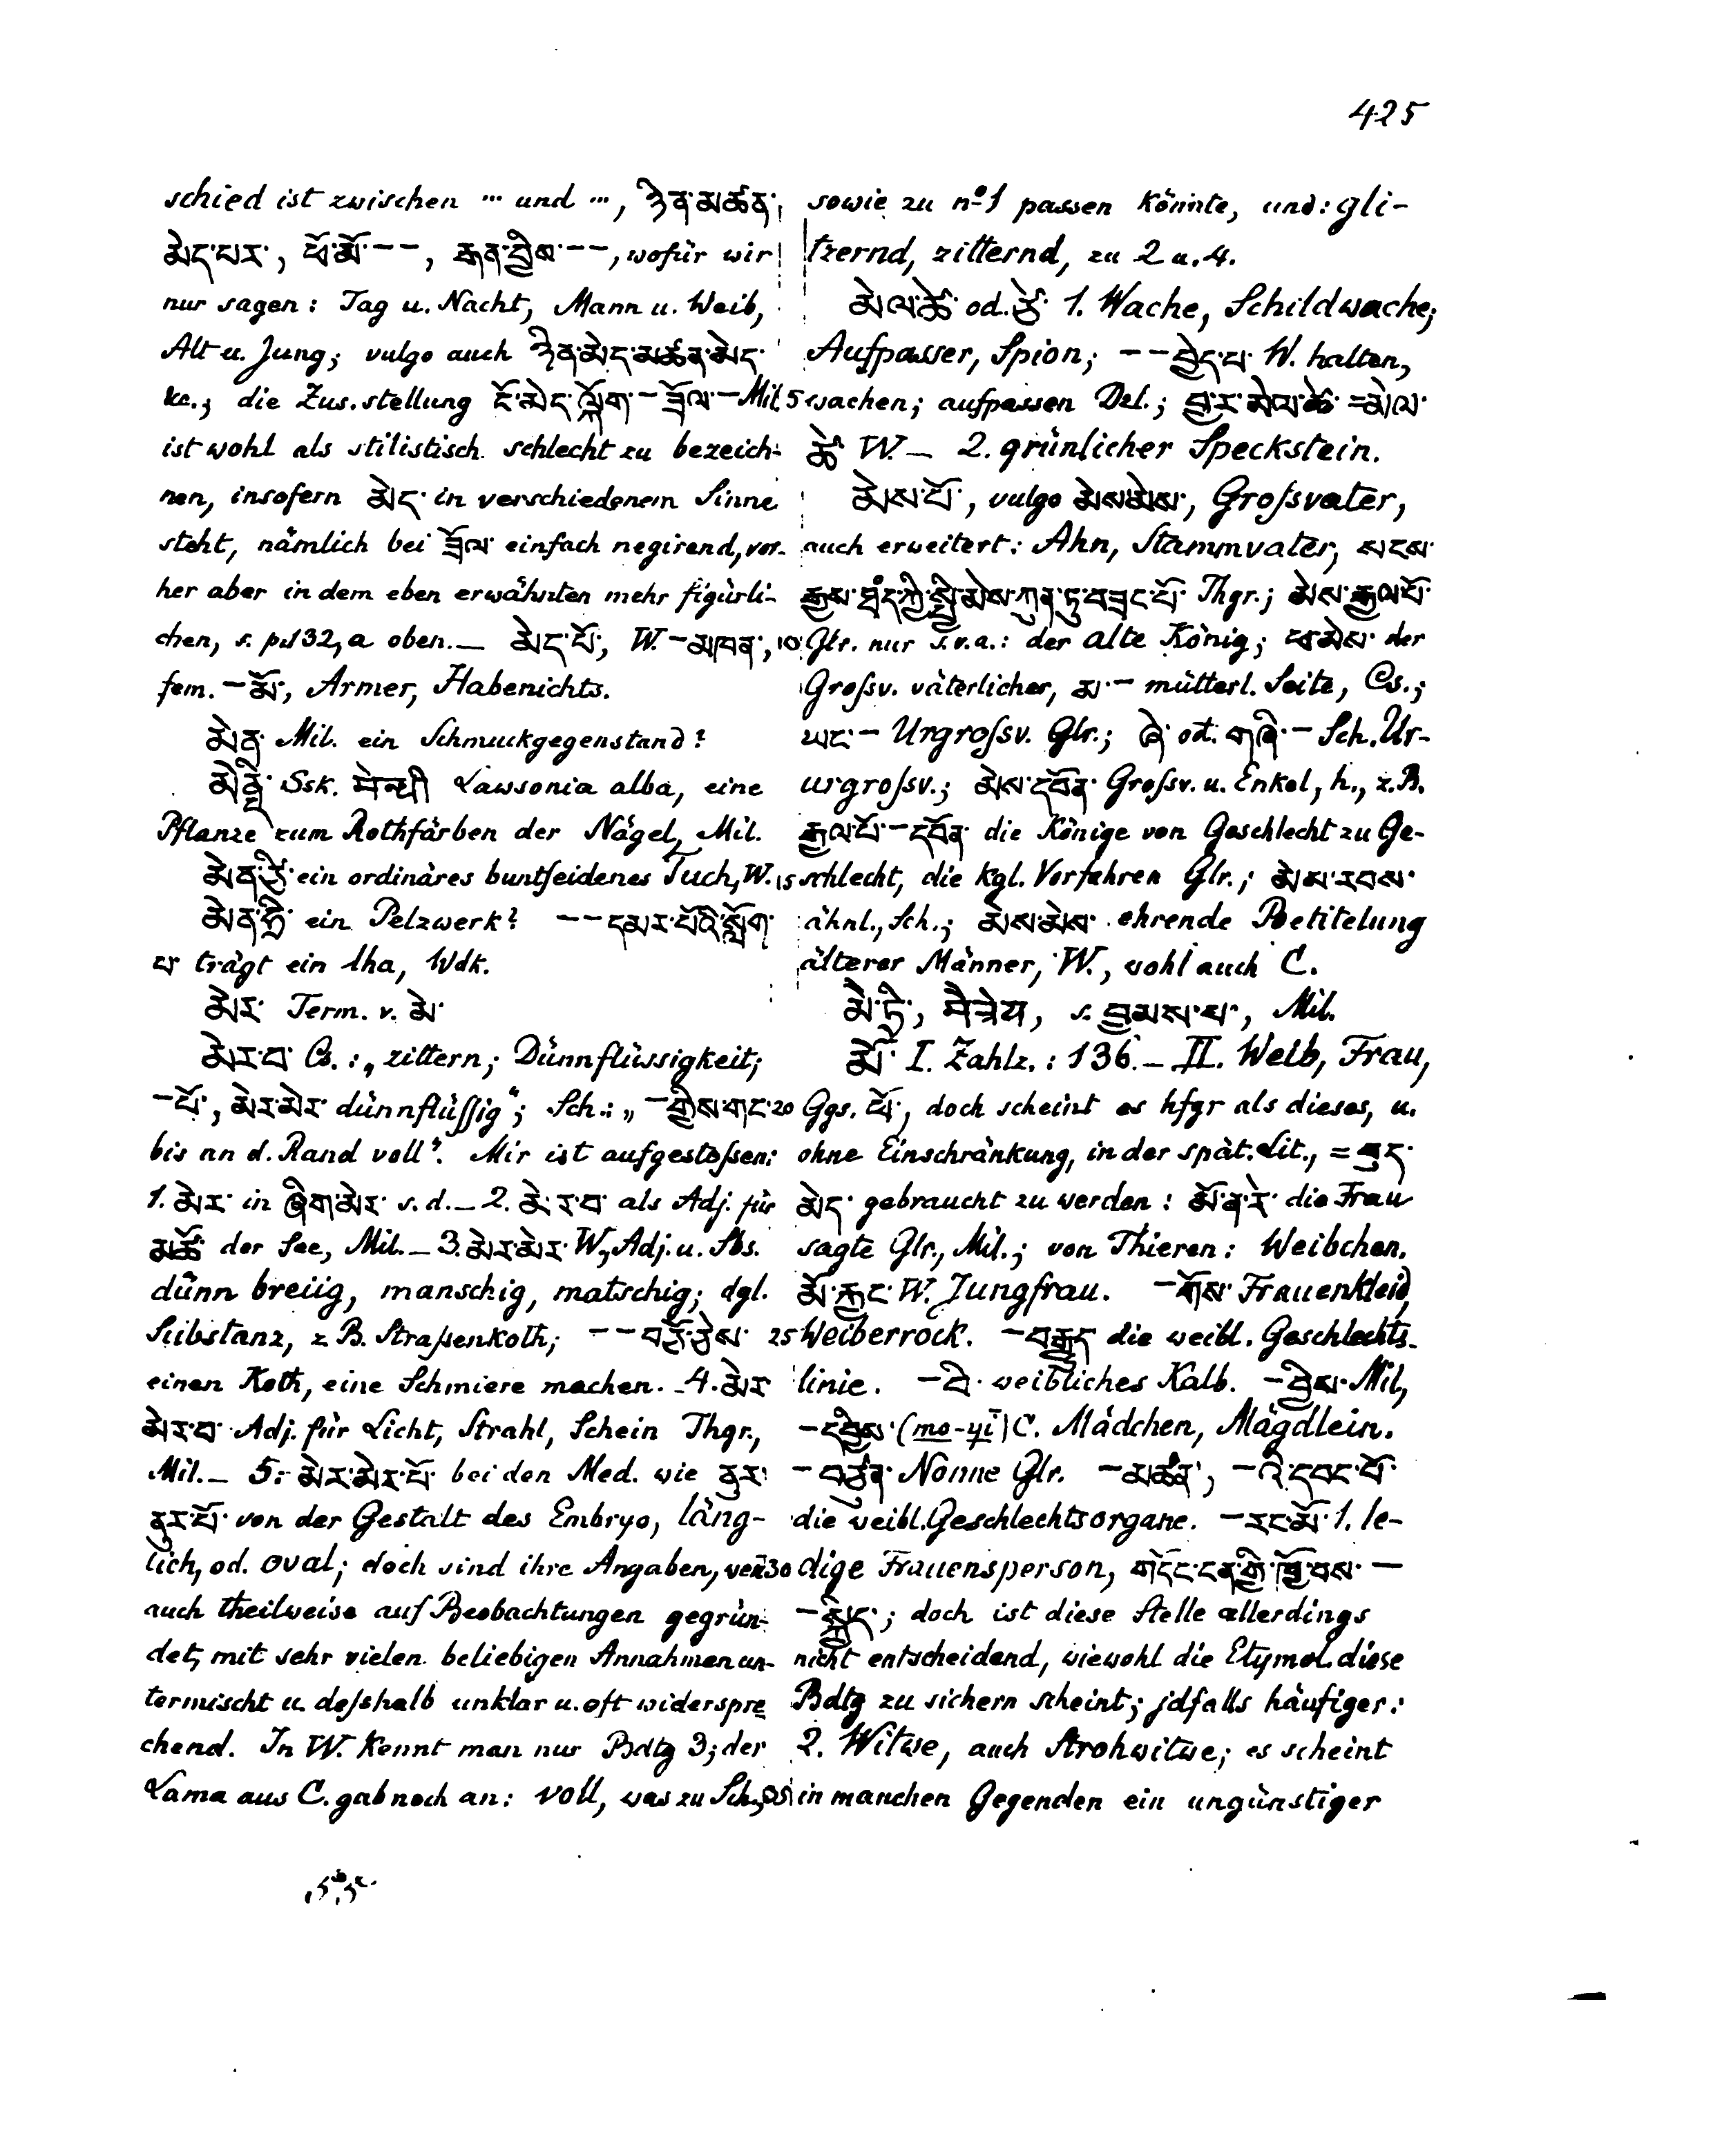 425
schied ist zwischen ··· und ···, ཉིན་མཚན་
མེད་པར་, ཕོ་མོ་ – –, རྒན་བྱིས་ – –, wofür wir
nur sagen: Tag u. Nacht, Mann u. Weib,
Alt u. Jung; vulgo auch ཉིན་མེད་མཚན་མེད་
&c.; die Zus.stellung ངོ་མེད་ལྐོག་ – ཟོལ་ – Mil.
ist wohl als stilistisch schlecht zu bezeich-
nen, insofern མེད་ in verschiedenem Sinne
steht, nämlich bei ཟོལ་ einfach negirend, vor-
her aber in dem eben erwähnten mehr figürli-
chen, s. p. 132, a oben. – མེད་པོ་, W. – མཁན་,
fem. – མོ་, Armer, Habenichts.
མེན་ Mil. ein Schmuckgegenstand?
མེནྡྷི་ Ssk. मेन्धी Lawsonia alba, eine
Pflanze zum Rothfärben der Nägel, Mil.
མེན་ཙི་ ein ordinäres buntseidenes Tuch, W.
མེན་ཏྲི་ ein Pelzwerk? – – དམར་པོའི་སློག་
པ་ trägt ein lha, Wdk.
མེར་ Term. v. མེ་
མེར་བ་ Cs.: „zittern; Dünnflüssigkeit;
– པོ་, མེར་མེར་ dünnflüssig"; Sch.: „ – གྱིས་གང་
bis an d. Rand voll". Mir ist aufgestoßen:
1. མེར་ in ཞིག་མེར་ s. d. – 2. མེ་ར་བ་ als Adj. für
མཚོ་ der See, Mil. – 3. མེར་མེར་ W., Adj. u. Sbs.
dünn breiig, manschig, matschig; dgl.
Substanz, z B. Straßenkoth; – – བཟོ་ཅེས་
einen Koth, eine Schmiere machen. – 4. མེར་
མེར་བ་ Adj. für Licht, Strahl, Schein Thgr.,
Mil. – 5. མེར་མེར་པོ་ bei den Med. wie ནུར་
ནུར་པོ་ von der Gestalt des Embryo, läng-
lich, od. oval; doch sind ihre Angaben, wenn
auch theilweise auf Beobachtungen gegrün-
det, mit sehr vielen beliebigen Annahmen un-
termischt u. deßhalb unklar u. oft widerspre-
chend. In W. kennt man nur Bdtg 3; der
Lama aus C. gab noch an: voll, was zu Sch.,
sowie zu nº 1 passen könnte, und: gli-
tzernd, zitternd, zu 2 u. 4.
མེལ་ཚེ་ od. ཙེ་ 1. Wache, Schildwache;
Aufpasser, Spion; – – བྱེད་པ་ W. halten,
5 wachen; aufpassen Dzl.; བྱ་ར་མེལ་ཚེ་ = མེལ་
ཚེ་ W. – 2. grünlicher Speckstein.
མེས་པོ་, vulgo མེས་མེས་, Großvater,
auch erweitert: Ahn, Stammvater, སངས་
རྒྱས་ཐམས་ཅད་ཀྱི་སྤྱི་མེས་ཀུན་ཏུ་བཟང་པོ་ Thgr.; མེས་རྒྱལ་པོ་
10 Glr. nur s. v. a.: der alte König; ཕ་མེས་ der
Großv. väterlicher, མ་ – mütterl. Seite, Cs.;
ཡང་ – Urgroßv. Glr.; ཞེ་ od. གཞི་ – Sch. Ur-
urgroßv.; མེས་དབོན་ Großv. u. Enkel, h., z. B.
རྒྱལ་པོ་ – དབོན་ die Könige von Geschlecht zu Ge-
15 schlecht, die kgl. Vorfahren Glr.; མེས་རབས་
ähnl., Sch.; མེས་མེས་ ehrende Betitelung
älterer Männer, W., wohl auch C.
མེ་ཏྲི་, मैत्रेय, s. བྱམས་པ་, Mil.
མོ་ I. Zahlz.: 136. – II. Weib, Frau,
20 Ggs. ཕོ་, doch scheint es hfgr als dieses, u.
ohne Einschränkung, in der spät. Lit., = བུད་
མེད་ gebraucht zu werden: མོ་ན་རེ་ die Frau
sagte Glr., Mil.; von Thieren: Weibchen.
མོ་རྐྱང་ W. Jungfrau. – གོས་ Frauenkleid,
25 Weiberrock. – བརྒྱུད་ die weibl. Geschlechts-
linie. – བེ་ weibliches Kalb. – བྱིས་ Mil.,
– དབྱིས་ (mo-yī) C. Mädchen, Mägdlein.
– བཙུན་ Nonne Glr. – མཚན་, – འི་དབང་པོ་
die weibl. Geschlechtsorgane. – རང་མོ་ 1. le-
30 dige Frauensperson, གདོང་ངན་གྱི་ཁྱོ་བས་ –
– སྐྱེད་; doch ist diese Stelle allerdings
nicht entscheidend, wiewohl die Etymol. diese
Bdtg zu sichern scheint; jdfalls häufiger:
2. Witwe, auch Strohwitwe; es scheint
35 in manchen Gegenden ein ungünstiger